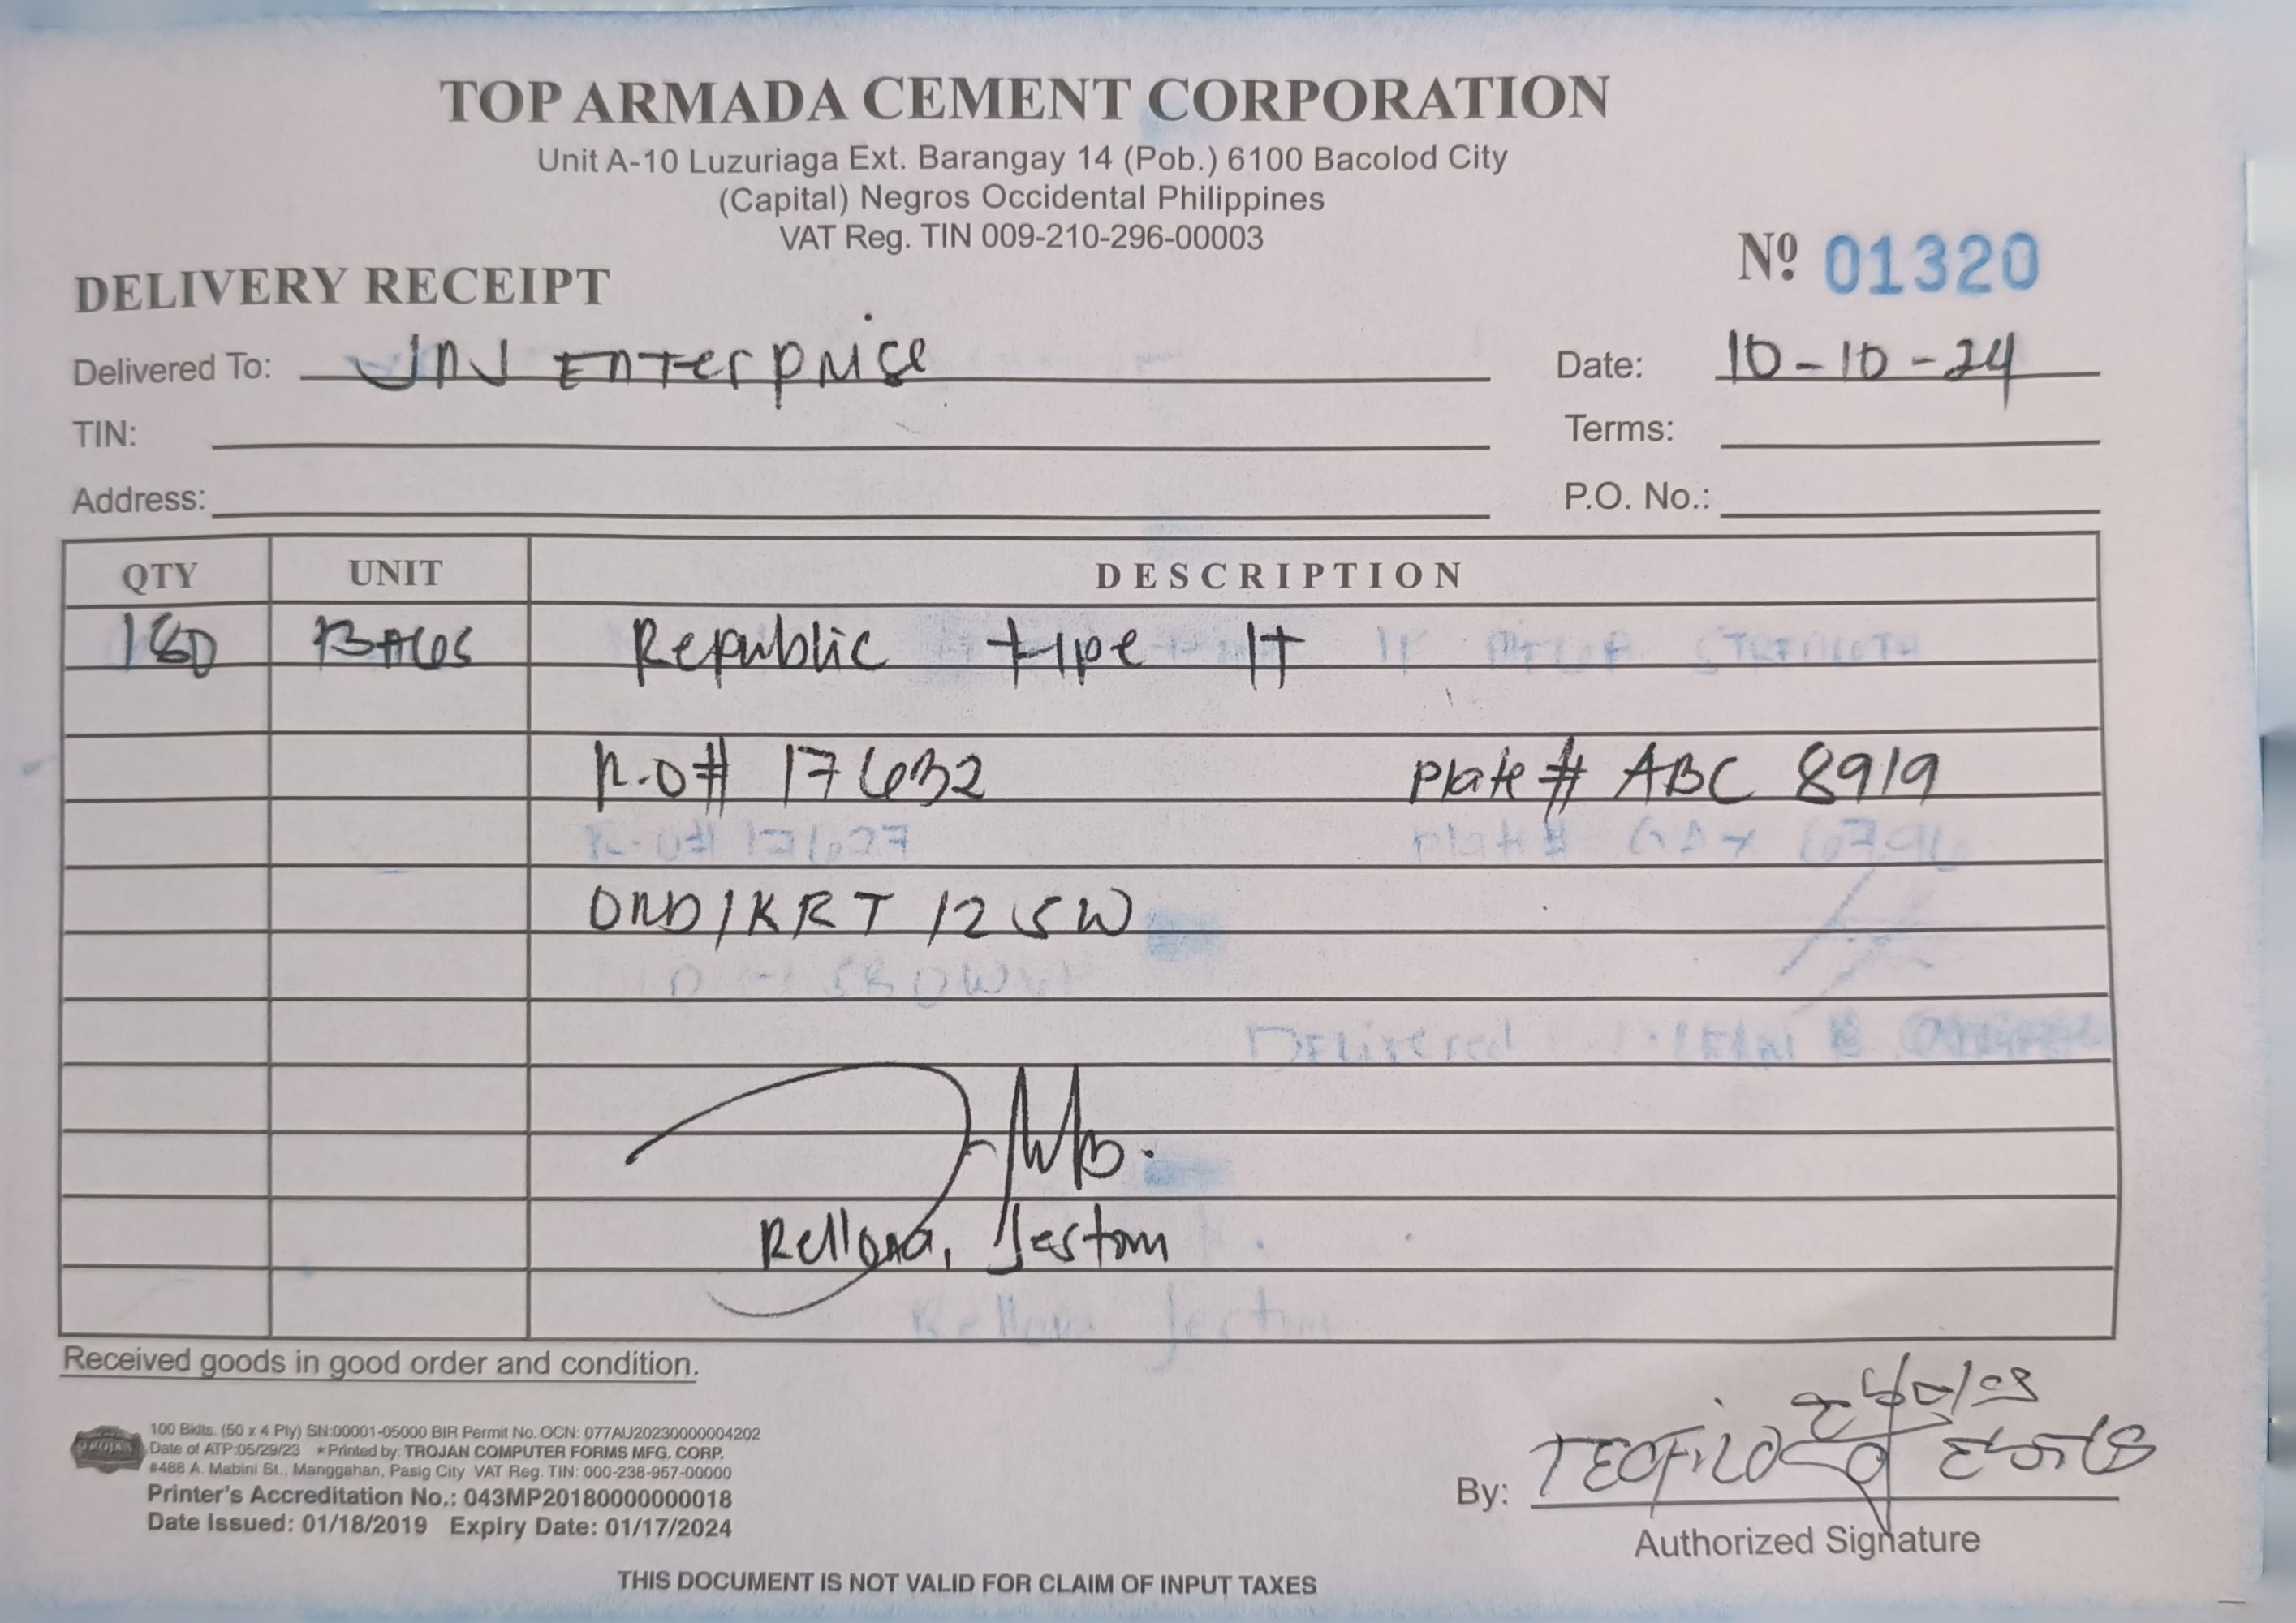 TOP ARMADA CEMENT CORPORATION
Unit A-10 Luzuriaga Ext. Barangay 14 (Pob.) 6100 Bacolod City
(Capital) Negros Occidental Philippines
VAT Reg. TIN 009-210-296-00003
Nº 01320
DELIVERY RECEIPT
Delivered To: JNJ Enterprise Date: 10-10-24
TIN: Terms:
Address: P.O. No.:
QTY UNIT DESCRIPTION
180 BAGS Republic type 1T
R.O# 17632 Plate # ABC 8919
R.O# 17627 Plate #
Delivered
Rellona, Jestom
Rellona Jestom
Received goods in good order and condition.
100 Bklts. (50 x 4 Ply) SN:00001-05000 BIR Permit No. OCN: 077AU20230000004202
Date of ATP:05/29/23 ★Printed by: TROJAN COMPUTER FORMS MFG. CORP.
#488 A. Mabini St., Manggahan, Pasig City VAT Reg. TIN: 000-238-957-00000
Printer's Accreditation No.: 043MP20180000000018
Date Issued: 01/18/2019 Expiry Date: 01/17/2024
By: TEOFILO
Authorized Signature
THIS DOCUMENT IS NOT VALID FOR CLAIM OF INPUT TAXES